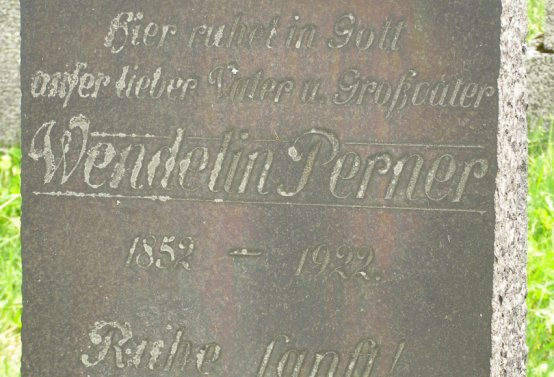 Hier ruhet in Gott
unser lieber Vater u. Großvater
Wendelin Perner
1852 – 1922.
Ruhe sanft!